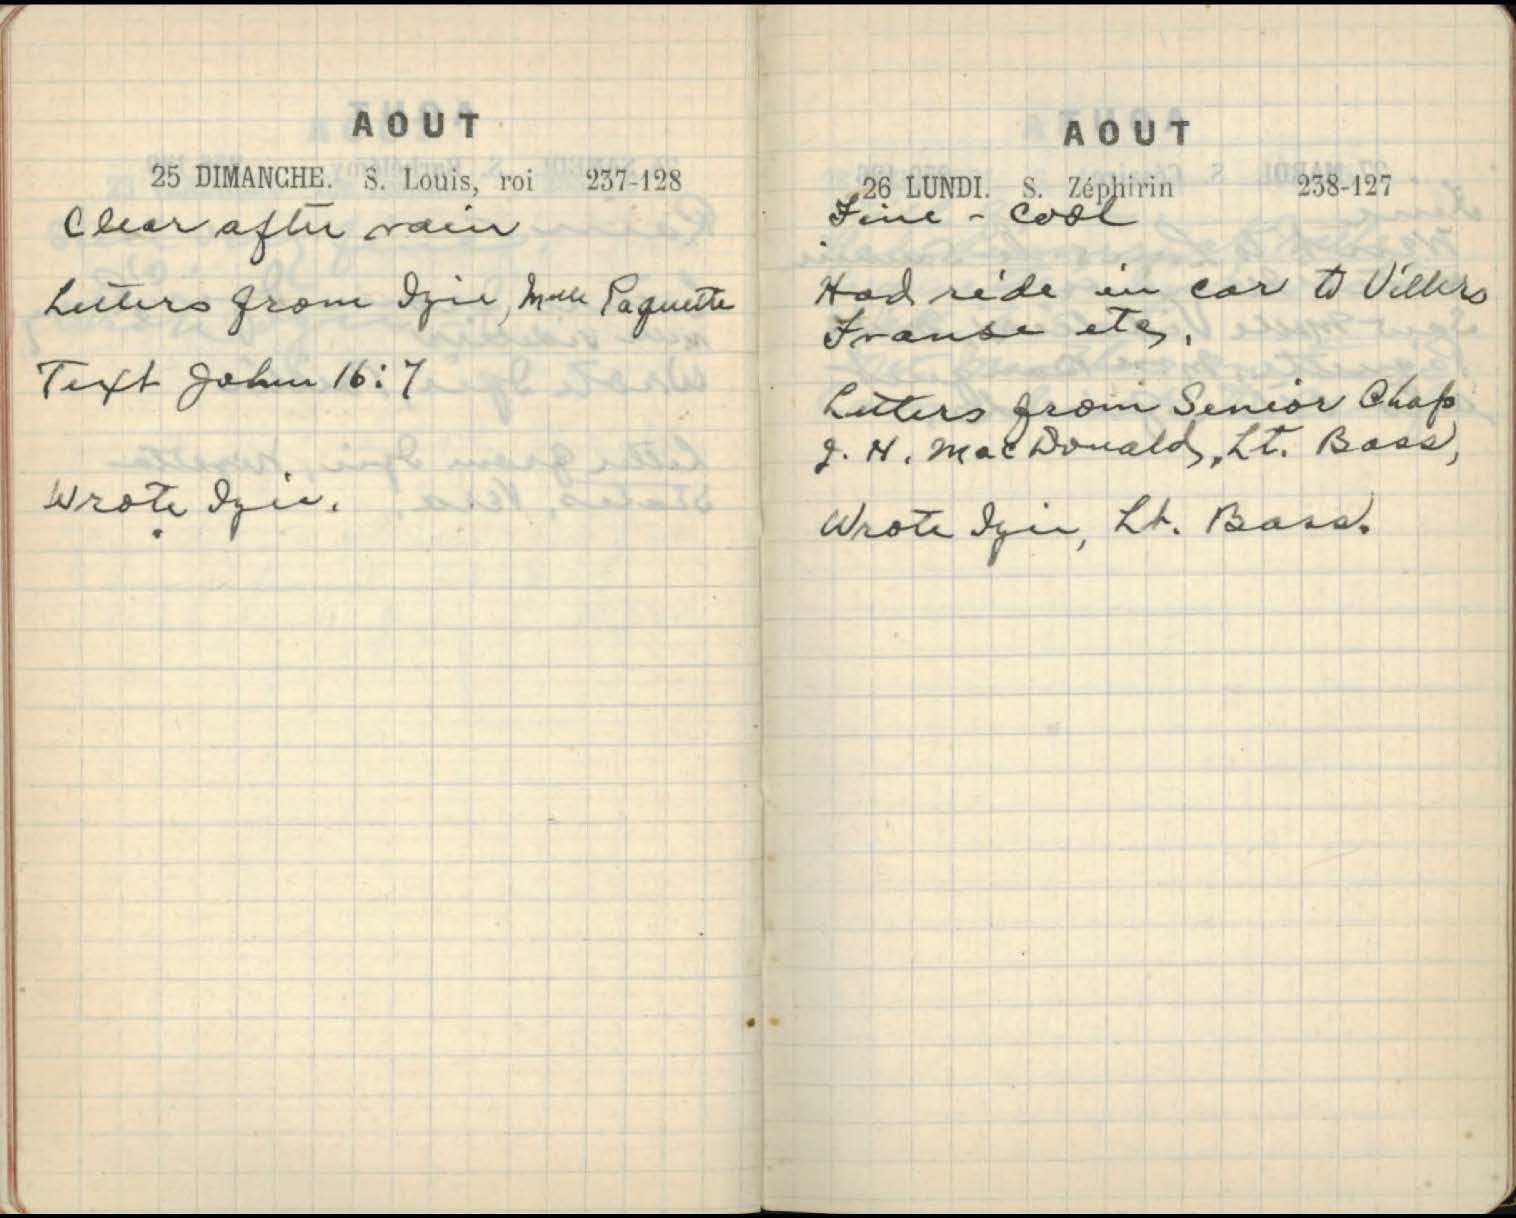 AOUT
25 DIMANCHE. S. Louis, roi 237-128
Clear after rain
Letters from Izie, Mlle Paquette
Text John 16:7
Wrote Izie.
AOUT
26 LUNDI. S. Zéphirin 238-127
Fine - cool
Had ride in car to Villers
etc.
Letters from Senior Chap
J. H. MacDonald, Lt. Bass,
Wrote Izie, Lt. Bass.